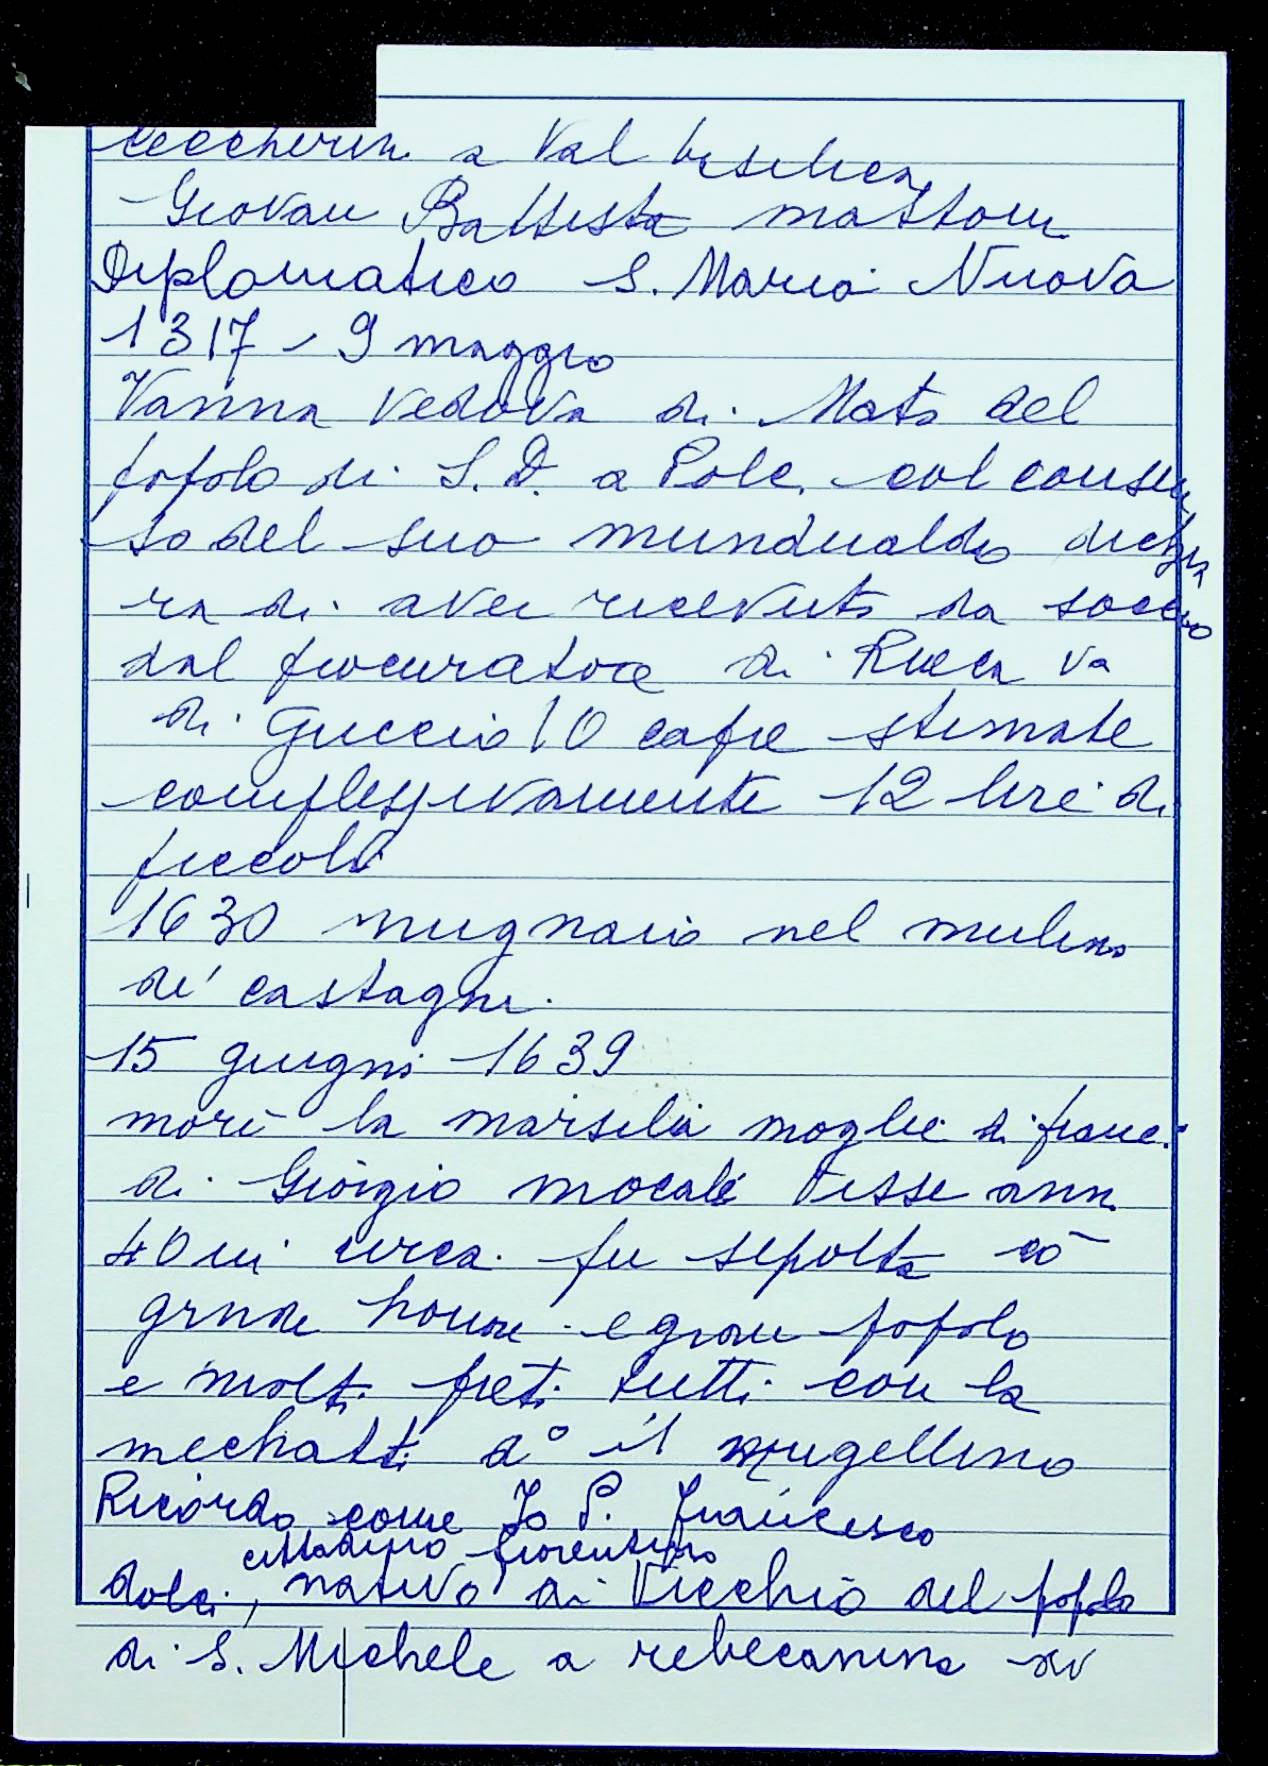 ceccherin a Val beselica
- Giovan Battista mattoni
Diplomatico S. Maria Nuova
1317 - 9 maggio
Vanna vedova di Mato del
popolo di S. D. a Pole col consen
so del suo mundualdo dichia
ra di aver ricevuto da soccio
dal procuratore di Ricca va
di Guccio 10 capre stimate
complessivamente 12 lire di
piccoli
1630 mugnaio nel mulino
de' castagni.
15 giugno 1639
morì la marsilia moglie di franc.
di Giorgio mocali visse ann
40 in circa. fu sepolta cō
grnde honore e gran popolo
e molti preti tutti con la
mechatti d° il mugellino
Ricordo come Io P. francesco
cittadino fiorentino
dolci, nativo di Vicchio del popolo
di S. Michele a rebecanina